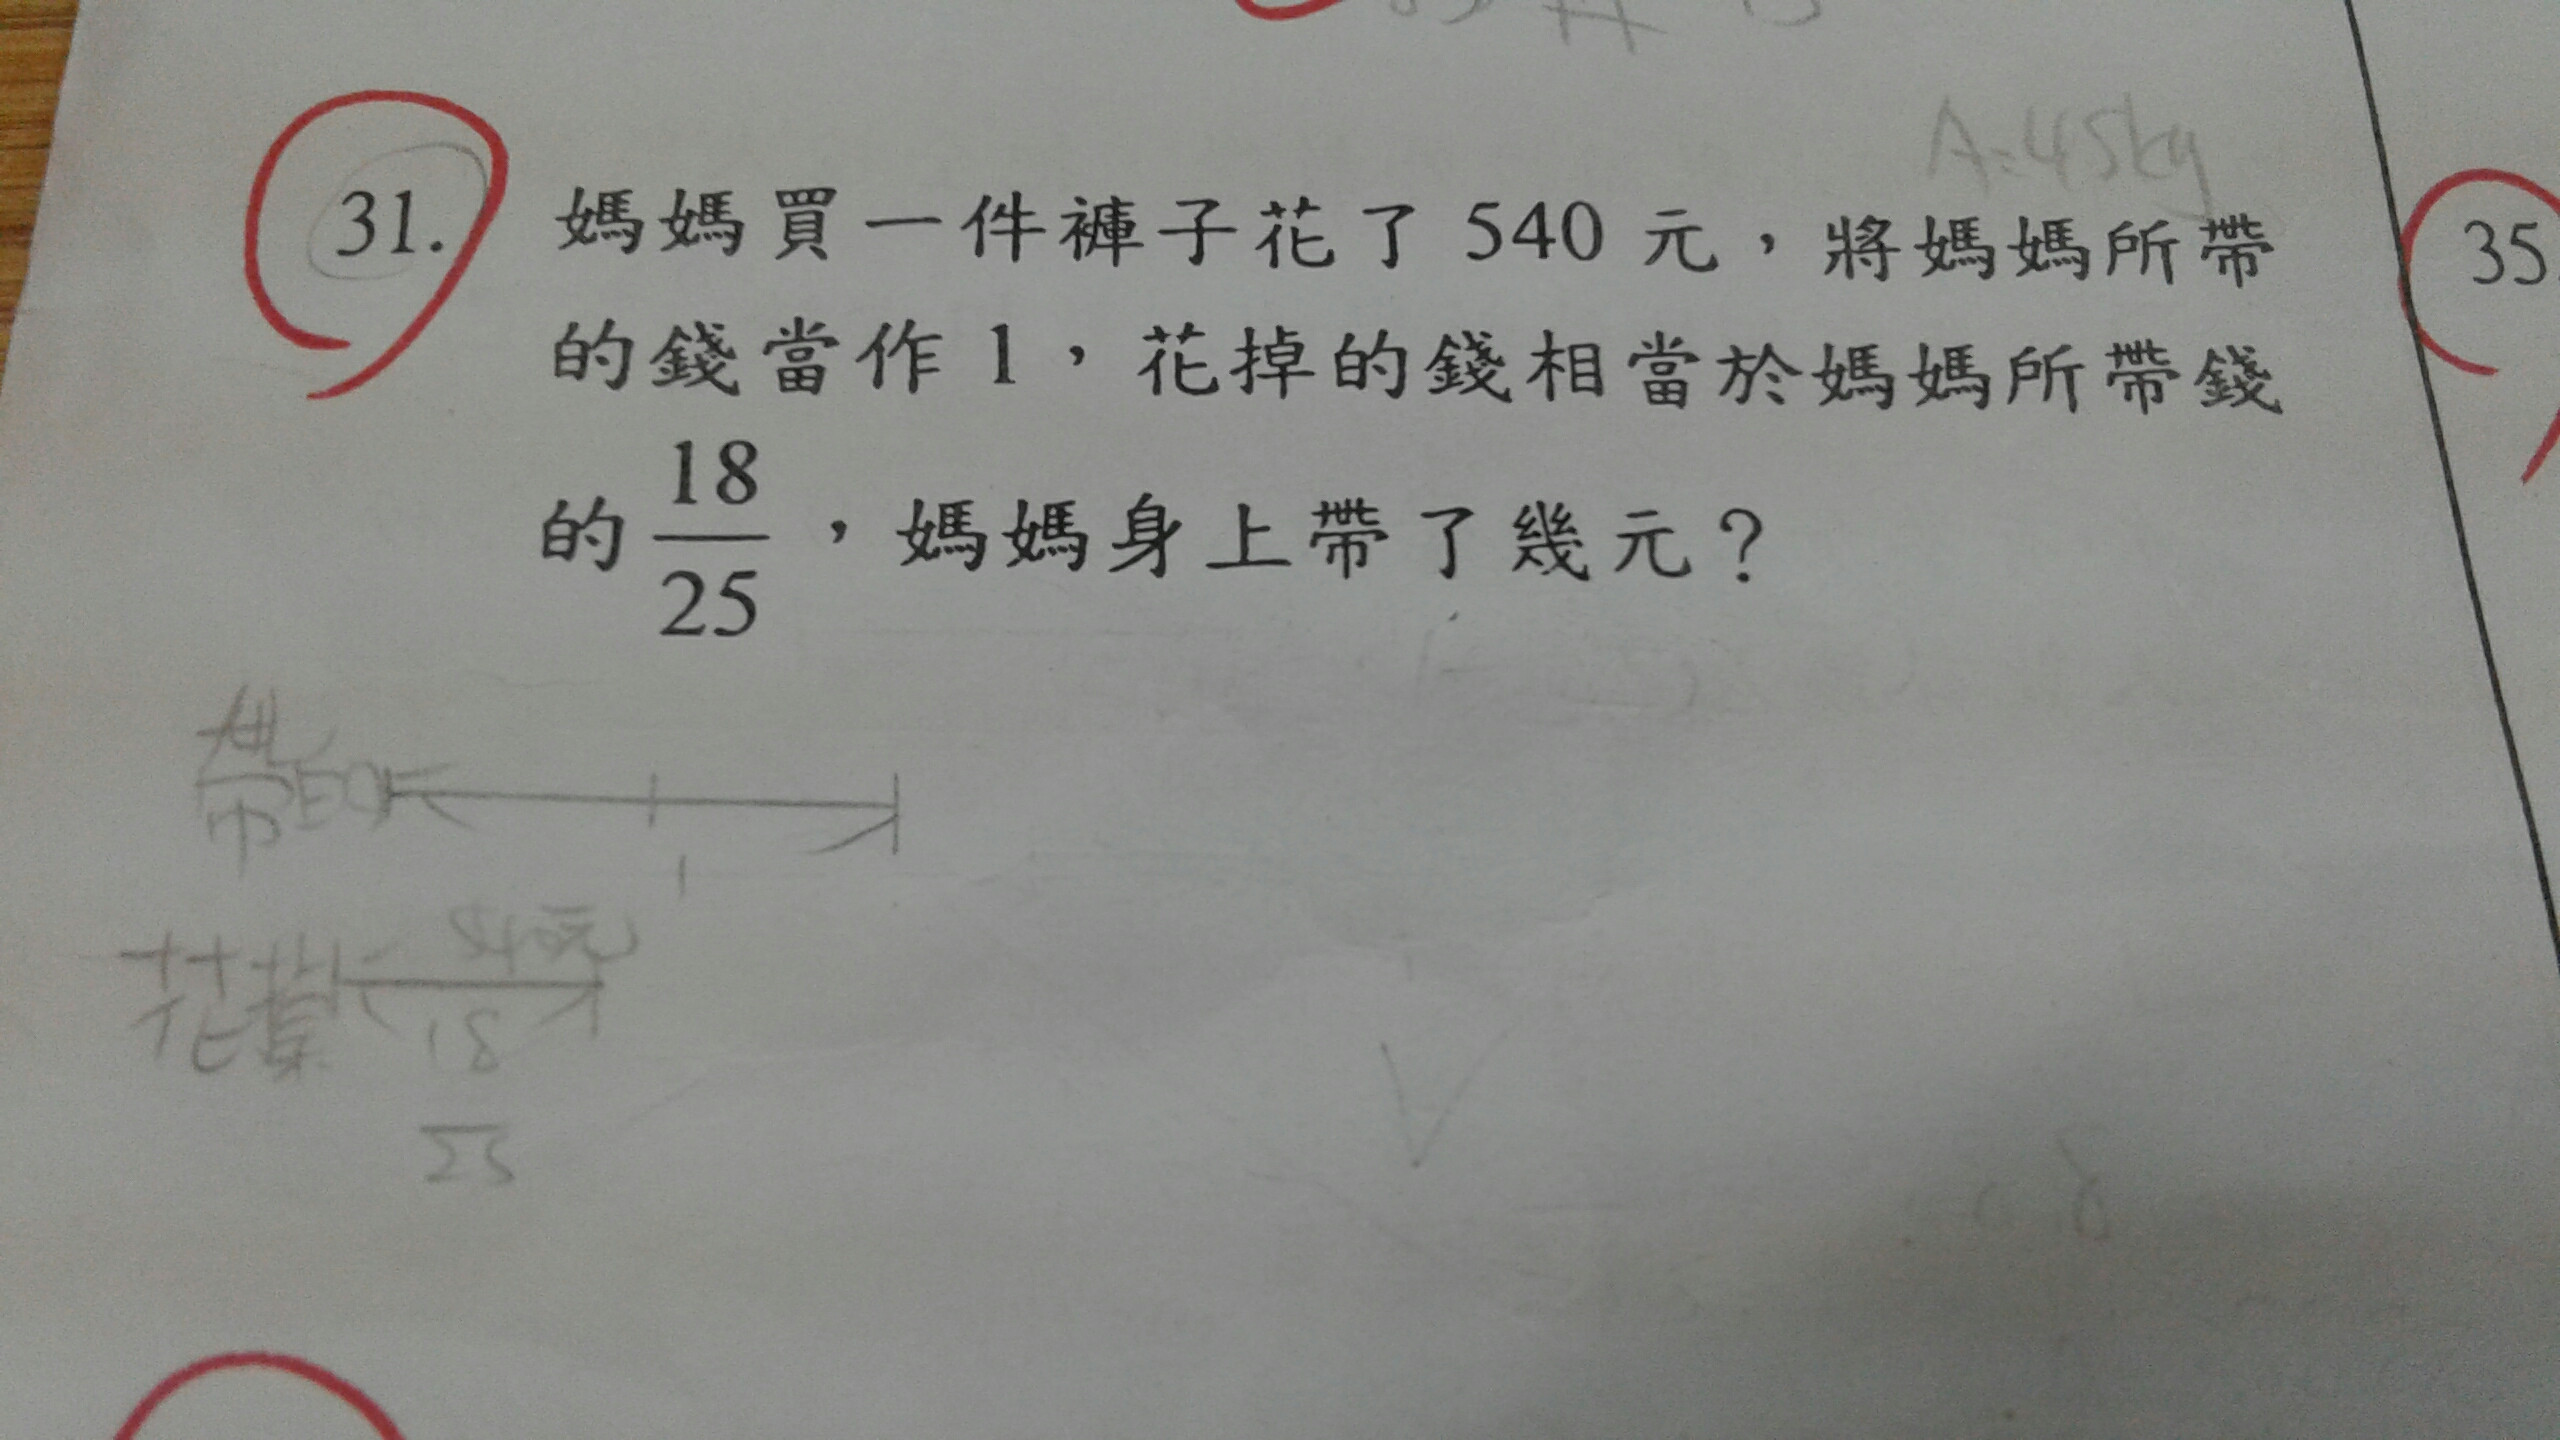 A=45kg
31. 媽媽買一件褲子花了 540 元，將媽媽所帶
的錢當作 1，花掉的錢相當於媽媽所帶錢
的 18/25，媽媽身上帶了幾元？
35.
帶的
1
540元
花掉
18
25